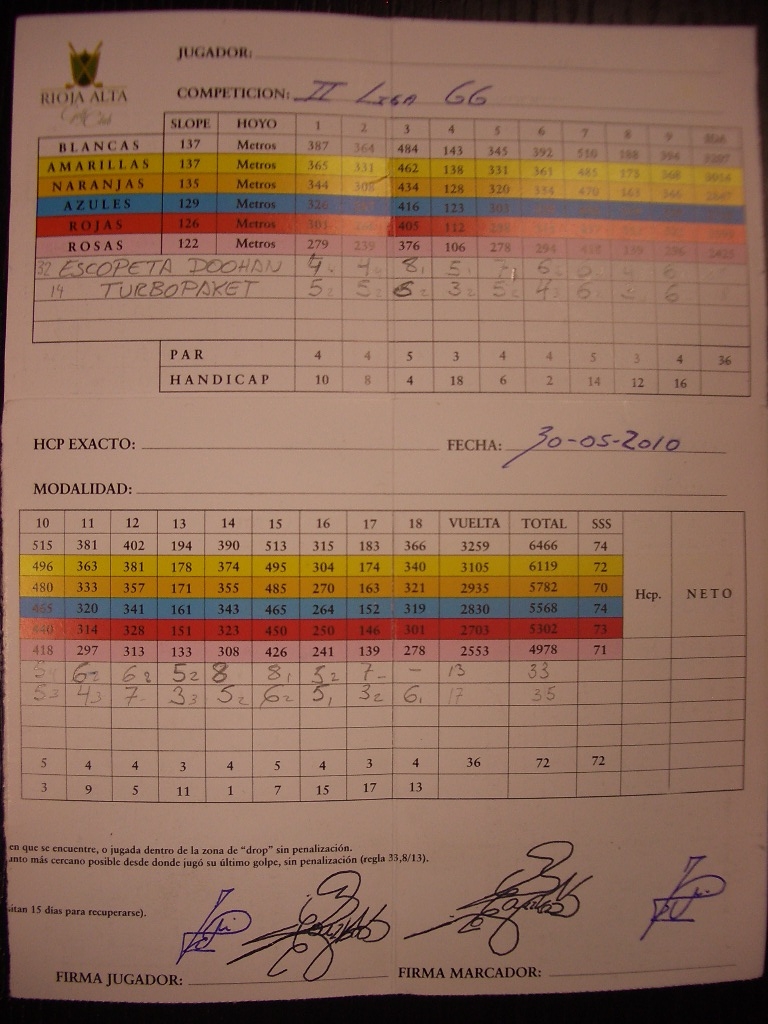 JUGADOR:
RIOJA ALTA
COMPETICION: II LIGA GG
SLOPE HOYO 1 2 3 4 5 6 7 8 9
BLANCAS 137 Metros 387 364 484 143 345 392 510 188 394
AMARILLAS 137 Metros 365 331 462 138 331 361 485 173 368 3014
NARANJAS 135 Metros 344 308 434 128 320 334 470 163 346
AZULES 129 Metros 326 416 123 303
ROJAS 126 Metros 301 405 112
ROSAS 122 Metros 279 239 376 106 278 294 139 2425
32 ESCOPETA DOOHAN 4 4 8 1 5 1 6 6
14 TURBOPAKET 5 2 5 2 6 2 3 2 5 2 4 3 6 6
PAR 4 4 5 3 4 4 5 3 4 36
HANDICAP 10 8 4 18 6 2 14 12 16
HCP EXACTO:
FECHA: 30-05-2010
MODALIDAD:
10 11 12 13 14 15 16 17 18 VUELTA TOTAL SSS
515 381 402 194 390 513 315 183 366 3259 6466 74
496 363 381 178 374 495 304 174 340 3105 6119 72
480 333 357 171 355 485 270 163 321 2935 5782 70
Hcp. NETO
465 320 341 161 343 465 264 152 319 2830 5568 74
440 314 328 151 323 450 250 146 301 2703 5302 73
418 297 313 133 308 426 241 139 278 2553 4978 71
6 2 6 2 5 2 8 8 1 5 2 7 - - 13 33
5 3 4 3 7 - 3 3 5 2 6 2 5 1 3 2 6 1 17 35
5 4 4 3 4 5 4 3 4 36 72 72
3 9 5 11 1 7 15 17 13
en que se encuentre, o jugada dentro de la zona de "drop" sin penalización.
anto más cercano posible desde donde jugó su último golpe, sin penalización (regla 33,8/13).
itan 15 días para recuperarse).
FIRMA JUGADOR:
FIRMA MARCADOR: